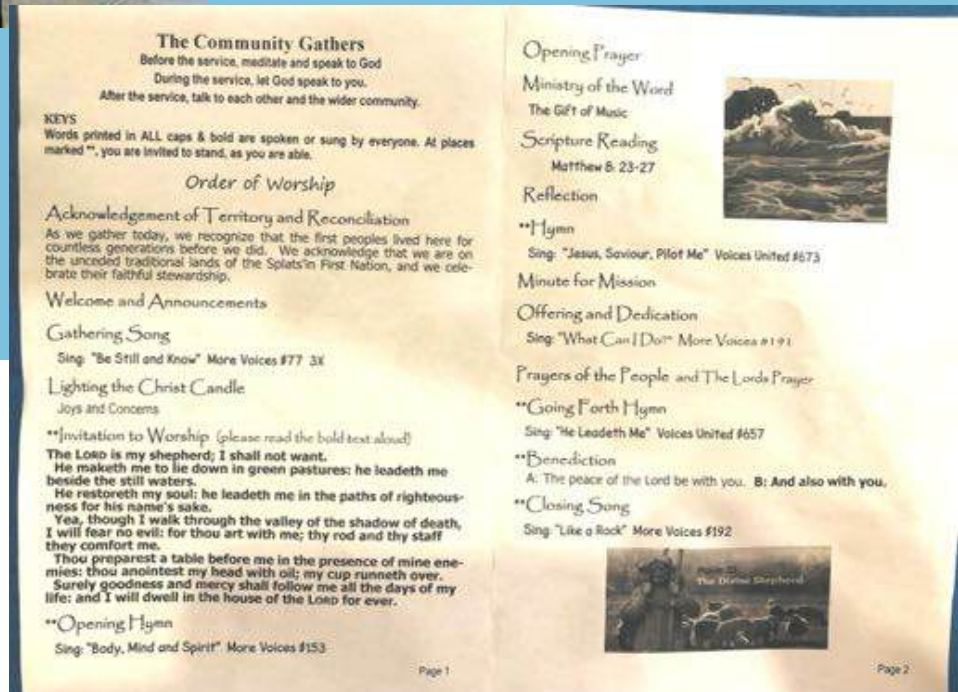 The Community Gathers
Before the service, meditate and speak to God
During the service, let God speak to you.
After the service, talk to each other and the wider community.
KEYS
Words printed in ALL caps & bold are spoken or sung by everyone. At places
marked **, you are invited to stand, as you are able.
Order of Worship
Acknowledgement of Territory and Reconciliation
As we gather today, we recognize that the first peoples lived here for
countless generations before we did. We acknowledge that we are on
the unceded traditional lands of the Splats'in First Nation, and we cele-
brate their faithful stewardship.
Welcome and Announcements
Gathering Song
Sing: "Be Still and Know" More Voices #77 3X
Lighting the Christ Candle
Joys and Concerns
**Invitation to Worship (please read the bold text aloud)
The LORD is my shepherd; I shall not want.
He maketh me to lie down in green pastures: he leadeth me
beside the still waters.
He restoreth my soul: he leadeth me in the paths of righteous-
ness for his name's sake.
Yea, though I walk through the valley of the shadow of death,
I will fear no evil: for thou art with me; thy rod and thy staff
they comfort me.
Thou preparest a table before me in the presence of mine ene-
mies: thou anointest my head with oil; my cup runneth over.
Surely goodness and mercy shall follow me all the days of my
life: and I will dwell in the house of the LORD for ever.
**Opening Hymn
Sing: "Body, Mind and Spirit" More Voices #153
Page 1
Opening Prayer
Ministry of the Word
The Gift of Music
Scripture Reading
Matthew 8: 23-27
Reflection
**Hymn
Sing: "Jesus, Saviour, Pilot Me" Voices United #673
Minute for Mission
Offering and Dedication
Sing: "What Can I Do?" More Voices #191
Prayers of the People and The Lords Prayer
**Going Forth Hymn
Sing: "He Leadeth Me" Voices United #657
**Benediction
A: The peace of the Lord be with you. B: And also with you.
**Closing Song
Sing: "Like a Rock" More Voices #192
The Divine Shepherd
Page 2